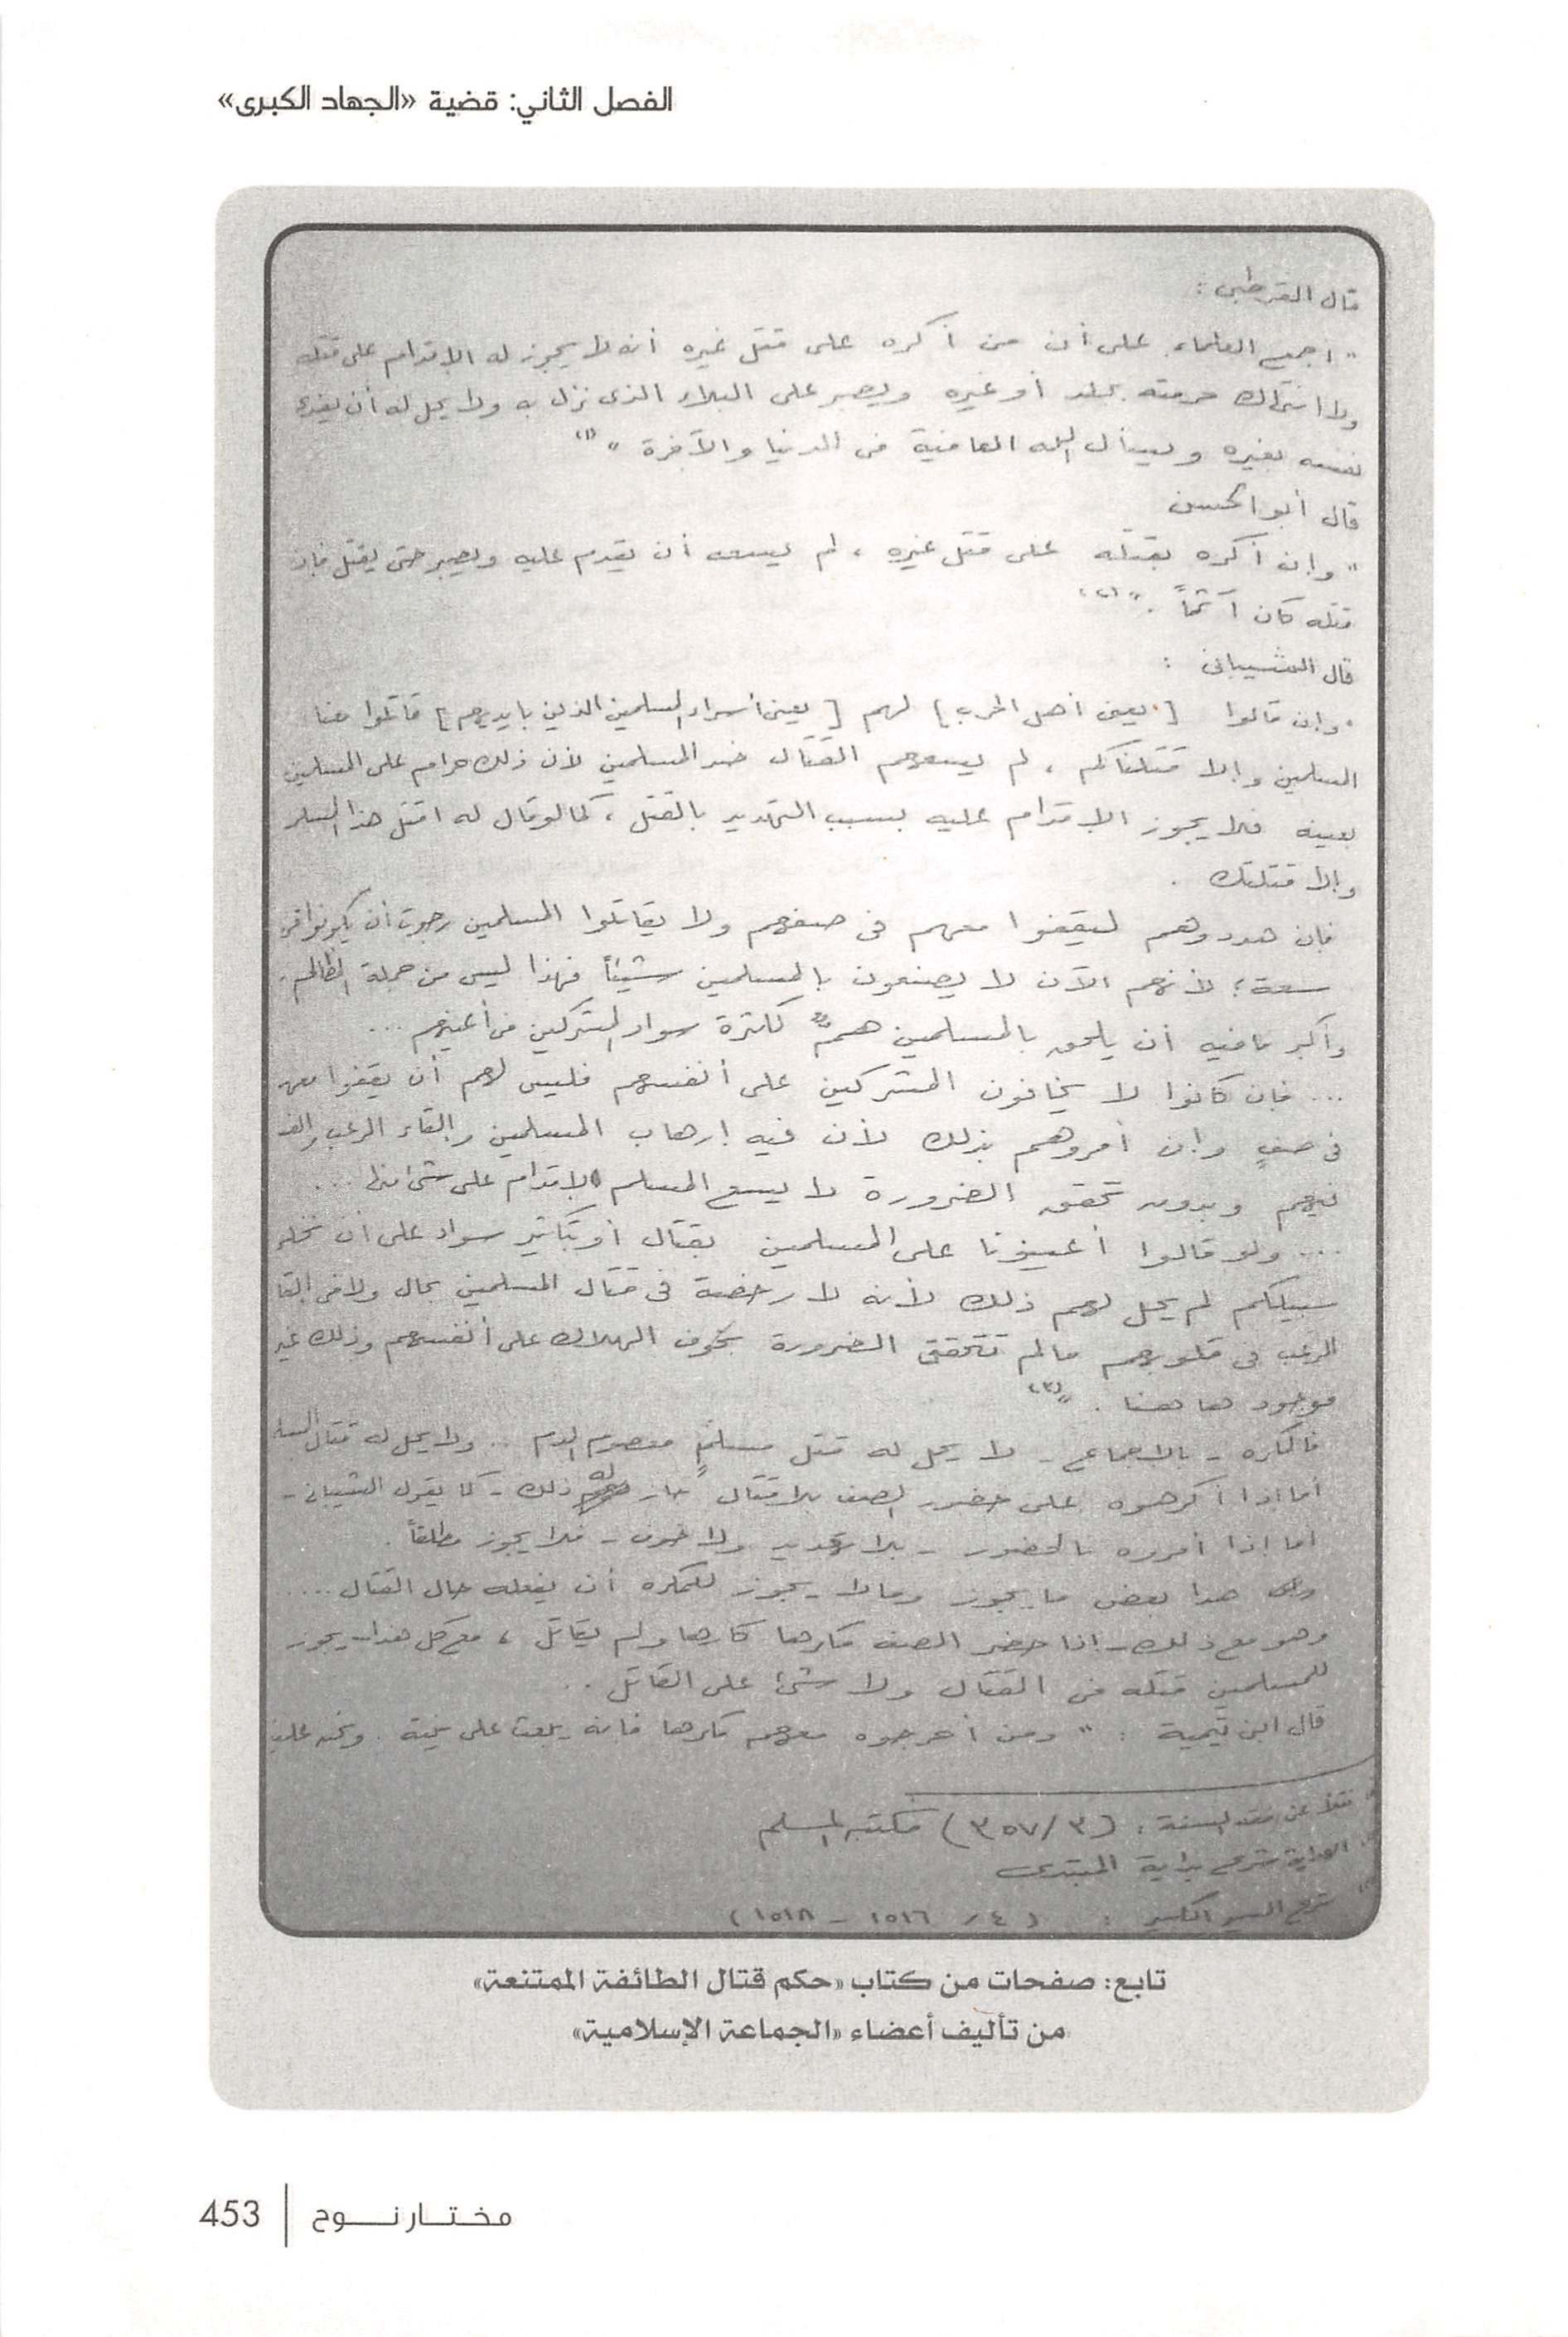 الفصل الثاني: قضية «الجهاد الكبرى»
قال القرطبى :
" أجمع العلماء على أن من أكره على قتل غيره أنه لا يجوز له الإقدام على قتله
ولا انتهاك حرمته بجلد أو غيره ويصبر على البلاء الذى نزل به ولا يحل له أن يفدى
نفسه بغيره ويسأل الله العافية فى الدنيا والآخرة " (١)
قال أبو الحسن
" وإن أكره بقتله على قتل غيره ، لم يسعه أن يقدم عليه ويصبر حتى يقتل فإن
قتله كان آثماً . " (٢)
قال الشيبانى :
" وإن قالوا [ يعنى أهل الحرب ] لهم [ يعنى أسراء المسلمين الذين بايديهم ] قاتلوا معنا
المسلمين وإلا قتلناكم ، لم يسعهم القتال ضد المسلمين لأن ذلك حرام على المسلمين
بعينه فلا يجوز الإقدام عليه بسبب التهديد بالقتل ، كما لو قال له اقتل هذا المسلم
وإلا قتلتك .
فإن هددوهم ليقفوا معهم فى صفهم ولا يقاتلوا المسلمين رجوت أن يكونوا فى
سعة ؛ لأنهم الآن لا يصنعون بالمسلمين شيئاً فهذا ليس من جملة المظالم .
وأكبر ما فيه أن يلحق بالمسلمين هم كثرة سواد المشركين فى أعينهم ...
... فإن كانوا لا يخافون المشركين على أنفسهم فليس لهم أن يقفوا معهم
فى صف وإن أمروهم بذلك لأن فيه إرهاب المسلمين وإلقاء الرعب
فيهم وبدون تحقق الضرورة لا يسع المسلم الإقدام على شئ منها ...
.... ولو قالوا أعينونا على المسلمين بقتال أو بتكثير سواد على أن نخلى
سبيلكم لم يحل لهم ذلك لأنه لا رخصة فى قتال المسلمين بحال ولا فى إلقا
الرعب فى قلوبهم ما لم تتحقق الضرورة بخوف الهلاك على أنفسهم وذلك غير
موجود ها هنا . " (٣)
فالمكره - بالاجماع - لا يحل له قتل مسلمٍ معصوم الدم .. ولا يحل له قتال
أما إذا أكرهوه على حضور الصف بلا قتال جاز له ذلك - كما يقول الشيبانى -
أما إذا أمروه بالحضور - بلا تهديد ولا خوف - فلا يجوز مطلقاً .
هذا بعض ما يجوز وما لا يجوز للمكره أن يفعله حال القتال ....
وهو مع ذلك - إذا حضر الصف مكرها كارها ولم يقاتل ، مع كل هذا - يجوز
للمسلمين قتله فى القتال ولا شئ على القاتل ..
قال ابن تيمية : " ومن أخرجوه معهم مكرها فانه يبعث على نيته . ونحن علينا
نقلا عن فقه السنة : ( ٣/ ٣٥٧ ) مكتبة المسلم
الهداية شرح بداية المبتدى
شرح السير الكبير : ( ٤ / ١٥١٦ - ١٥١٨ )
تابع: صفحات من كتاب «حكم قتال الطائفة الممتنعة»
من تأليف أعضاء «الجماعة الإسلامية»
مختار نوح | 453